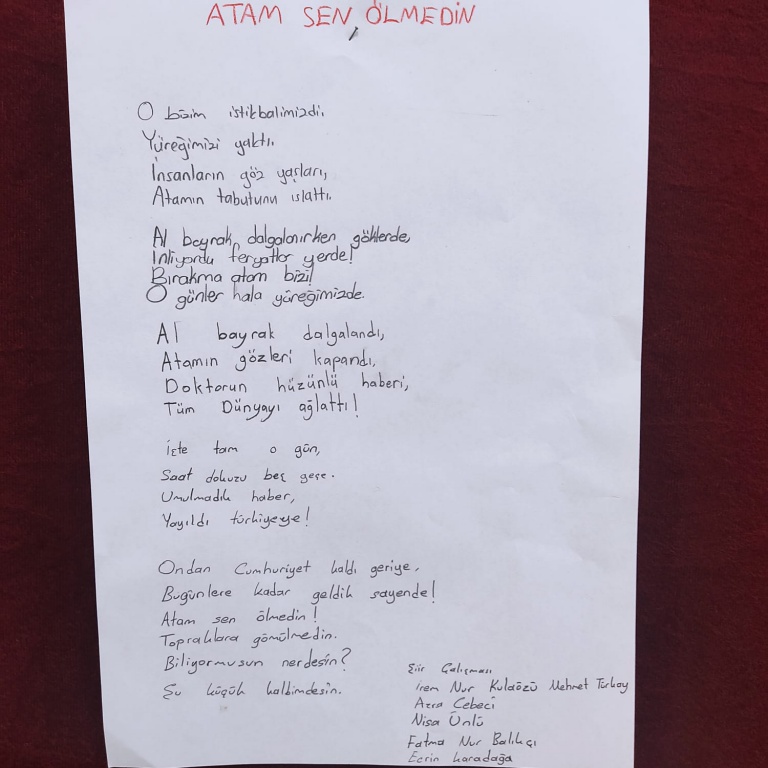 ATAM SEN ÖLMEDİN
O bizim istikbalimizdi.
Yüreğimizi yaktı.
İnsanların göz yaşları,
Atamın tabutunu ıslattı.
Al bayrak dalgalanırken göklerde,
İnliyordu feryatlar yerde!
Bırakma atam bizi!
O günler hala yüreğimizde.
Al bayrak dalgalandı,
Atamın gözleri kapandı,
Doktorun hüzünlü haberi,
Tüm Dünyayı ağlattı!
İşte tam o gün,
Saat dokuzu beş geçe.
Umulmadık haber,
Yayıldı türkiyeye!
Ondan Cumhuriyet kaldı geriye,
Bugünlere kadar geldik sayende!
Atam sen ölmedin!
Topraklara gömülmedin.
Biliyormusun nerdesin?
Şu küçük kalbimdesin.
Şiir Çalışması
irem Nur Kuldözü Mehmet Türkay
Azra Cebeci
Nisa Ünlü
Fatma Nur Balıkçı
Ecrin karadağa